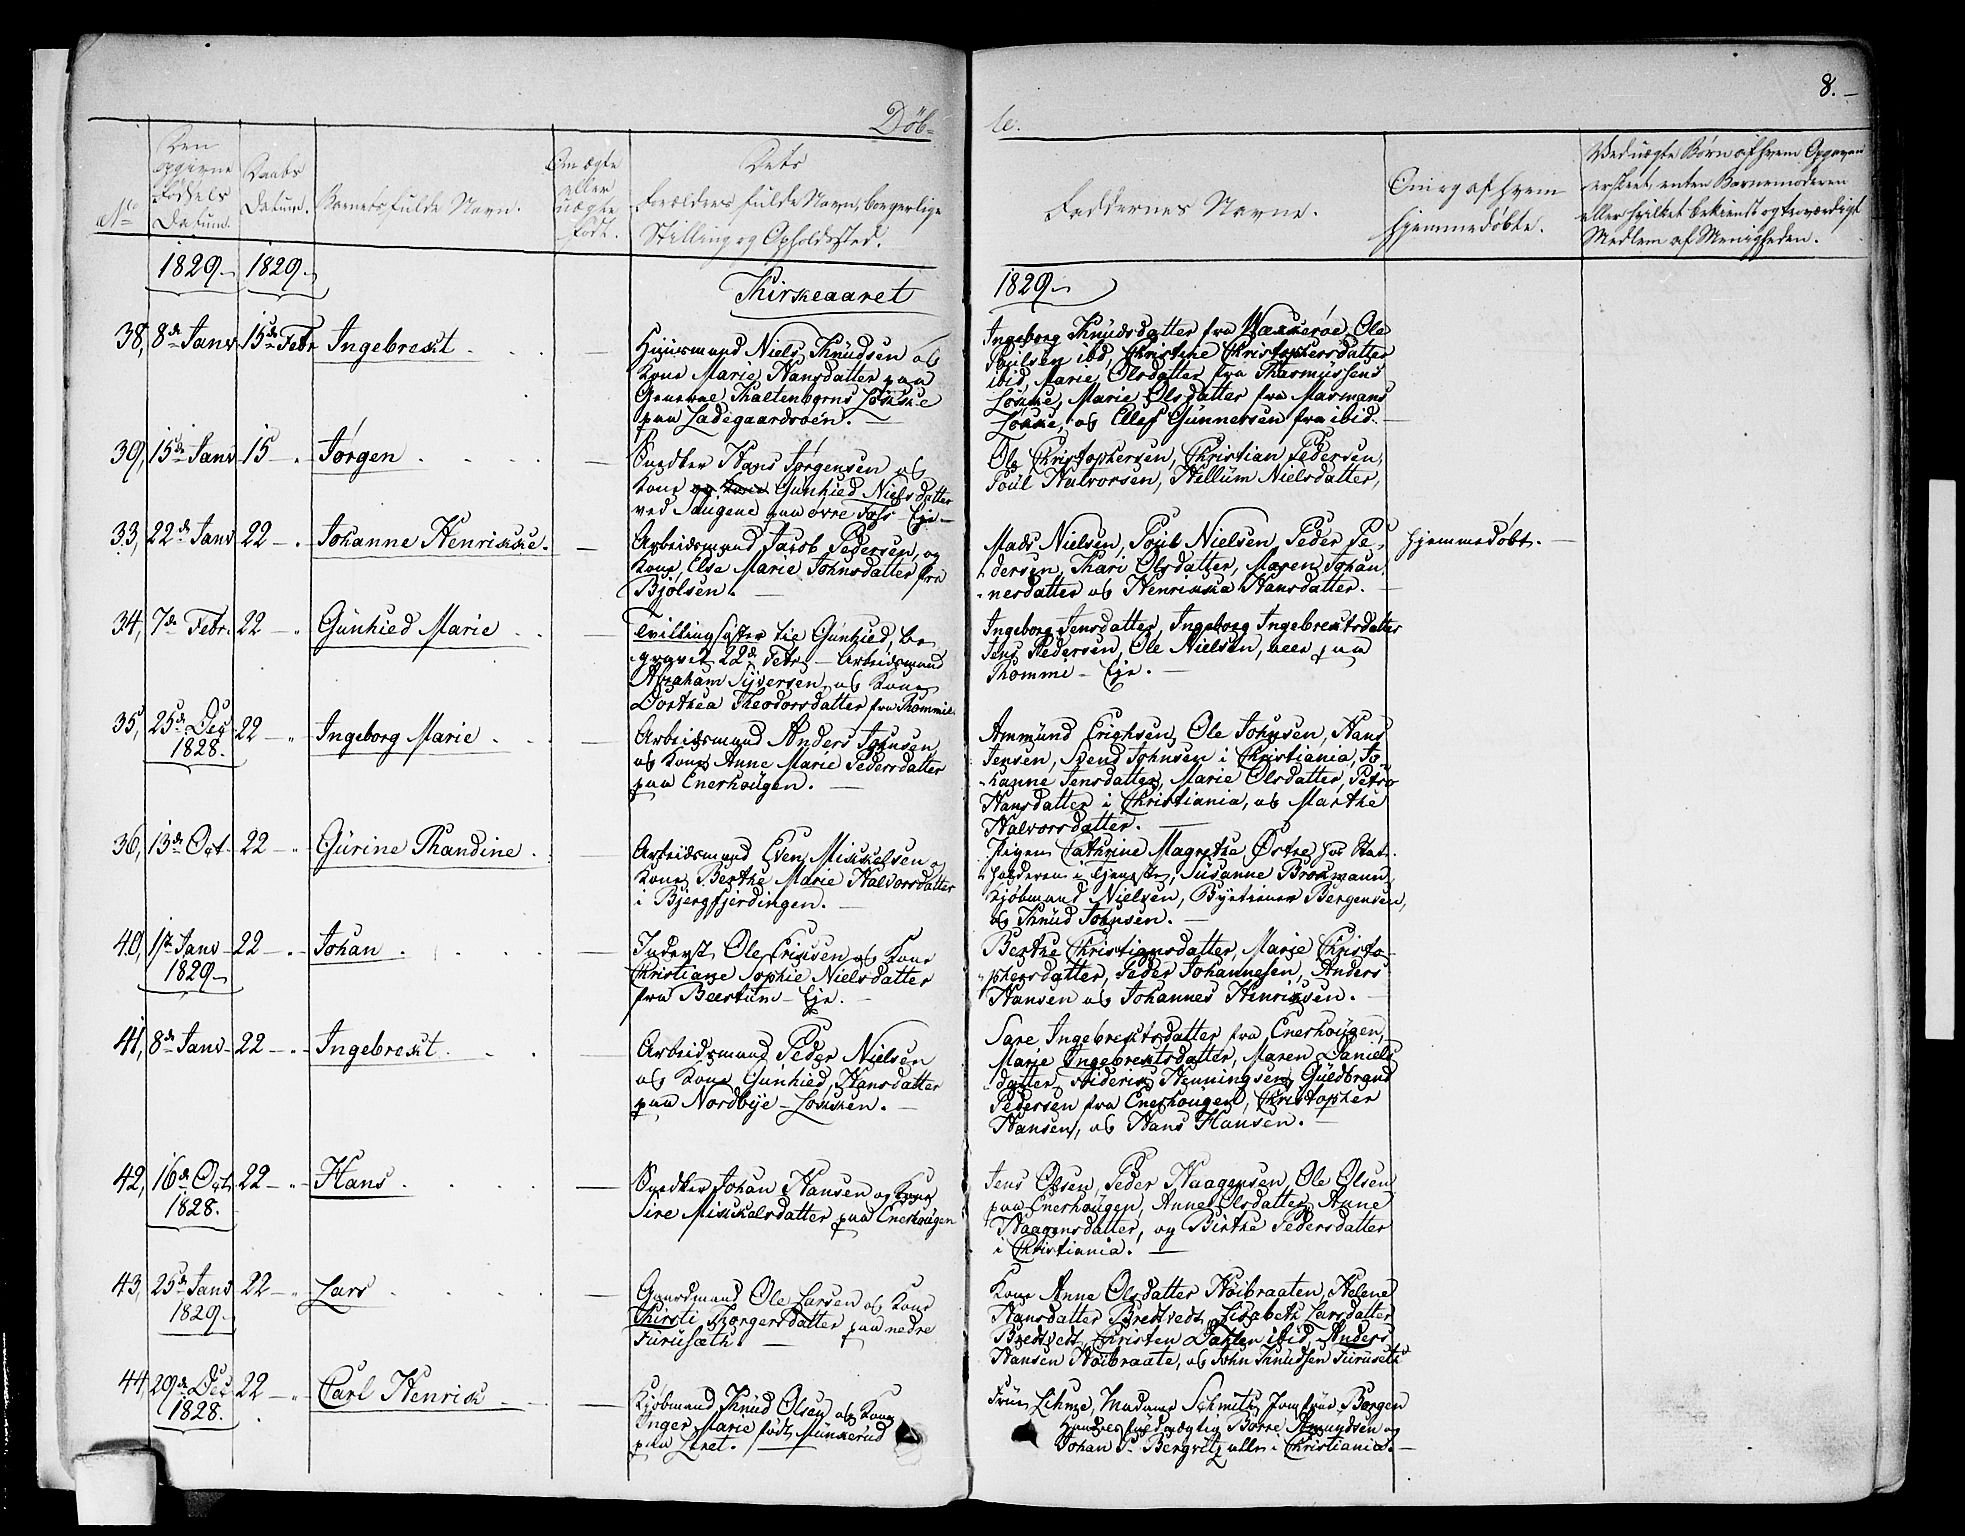 8.
Døb-
te.
No
Den opgivne Fødsels Datum.
Daabs Datum.
Barnets fulde Navn.
Om ægte eller uægte født.
Dets Forældres fulde Navn, borgerlige Stilling og Opholdssted.
Faddernes Navne.
Om og af hvem hjemmedøbt.
Ved uægte Børn af hvem Opgaven er skeet, enten Barnemoderen eller hvilket bekiendt og troværdigt Medlem af Menigheden.
1829 1829
Kirkeaaret 1829
38, 8de Janv 15de Febr Ingebrekt. —
Huusmand Niels Knudsen og
Kone Marie Hansdatter paa
General Kaltenborns Løkke
paa Ladegaardsøen. —
Ingeborg Knudsdatter fra Wækkerøe, Ole
Poulsen ibd, Christine Christophersdatter
ibid, Marie Olsdatter fra Rasmussens
Løkke, Marie Olsdatter fra Marmans
Løkke, og Ellef Gunnersen fra ibid. —
39, 15de Janv 15 — " — Jørgen —
Snedker Hans Jørgensen og
Kone og Kone Gunhild Nielsdatter
ved Saugene paa øvre Foss Eje —
Ole Christophersen, Christian Pedersen,
Poul Halvorsen, Hellum Nielsdatter,
33, 22de Janv 22 — " — Johanne Henrikke. —
Arbeidsmand Jacob Pedersen, og
Kone Else Marie Johnsdatter fra
Bjølsen. —
Mads Nielsen, Poul Nielsen, Peder Pe-
dersen, Kari Olsdatter, Maren Johan-
nesdatter og Henrikka Hansdatter. —
Hjemmedøbt. —
34, 7de Febr. 22 — " Gunhild Marie
Tvillingsøster til Gunhild, be-
gravet 22de Febr. — Arbeidsmand
Abraham Syversen og Kone
Dorthea Theodorsdatter fra Rommie
Ingeborg Jensdatter, Ingeborg Ingebrektsdatter
Jens Pedersen, Ole Nielsen, alle paa
Rommi — Eje. —
35, 25de Dec 1828. 22 — " Ingeborg Marie —
Arbeidsmand Anders Johnsen
og Kone Anne Marie Pedersdatter
paa Enerhougen. —
Ammund Erichsen, Ole Johnsen, Hans
Jensen, Svend Johnsen i Christiania, Jo-
hanne Jensdatter, Marie Olsdatter, Petra
Hansdatter i Christiania, og Marthe
Halvorsdatter. —
36, 13de Oct. 22 — " Gurine Randine —
Arbeidsmand Even Mikkelsen og
Kone Berthe Marie Halvorsdatter
i Bjergfjerdingen. —
Pigen Cathrine Magrethe Østre hos Stat-
holderen i Tjeneste, Susanne Brokmann,
Kjøbmand Nielsen, Bergensen,
og Knud Johnsen. —
40, 1ste Janv 1829 22 — " — Johan —
Inderst Ole Eriksen og Kone
Christiane Sophie Nielsdatter
fra Beertum — Eje. —
Berthe Christiansdatter, Marie Christo-
phersdatter, Peder Johannesen, Anders
Hansen og Johannes Henriksen. —
41, 8de Janv 22 — " — Ingebrekt —
Arbeidsmand Peder Nielsen
og Kone Gunhild Hansdatter
paa Nordbye-Løkken. —
Sare Ingebrektsdatter fra Enerhougen,
Marie Ingebrektsdatter, Maren Daniels-
datter, Friderik Henningsen, Guldbrand
Pedersen fra Enerhougen, Christopher
Hansen, og Hans Hansen. —
42, 16de Oct 1828. 22 — " — Hans —
Snedker Johan Hansen og Kone
Sire Mikkelsdatter paa Enerhougen
Jens Olsen, Peder Haagensen, Ole Olsen
paa Enerhougen, Anne Olsdatter, Anne
Haagensdatter, og Birthe Pedersdatter
i Christiania. —
43, 25de Janv 1829 22 — " — Lars —
Gaardmand Ole Larsen og Kone
Kirsti Torgersdatter paa nedre
Furusæth. —
Kone Anne Olsdatter Høibraaten, Helene
Hansdatter Bredtvedt, Lisabeth Larsdatter
Bredtvedt, Christen Dahlen ibid, Anders
Hansen Høibraate, og John Knudsen Furuseth
44, 29de Dec 1828. 22 — " Carl Henrik —
Kjøbmand Knud Olsen og Kone
Inger Marie født Munkerud
paa Leret. —
Frue Lihme, Madame Schmith, Jomfrue Borgen
Handelsfuldmægtig Borre Amundsen og
Johan P. Bergvitz alle i Christiania. —